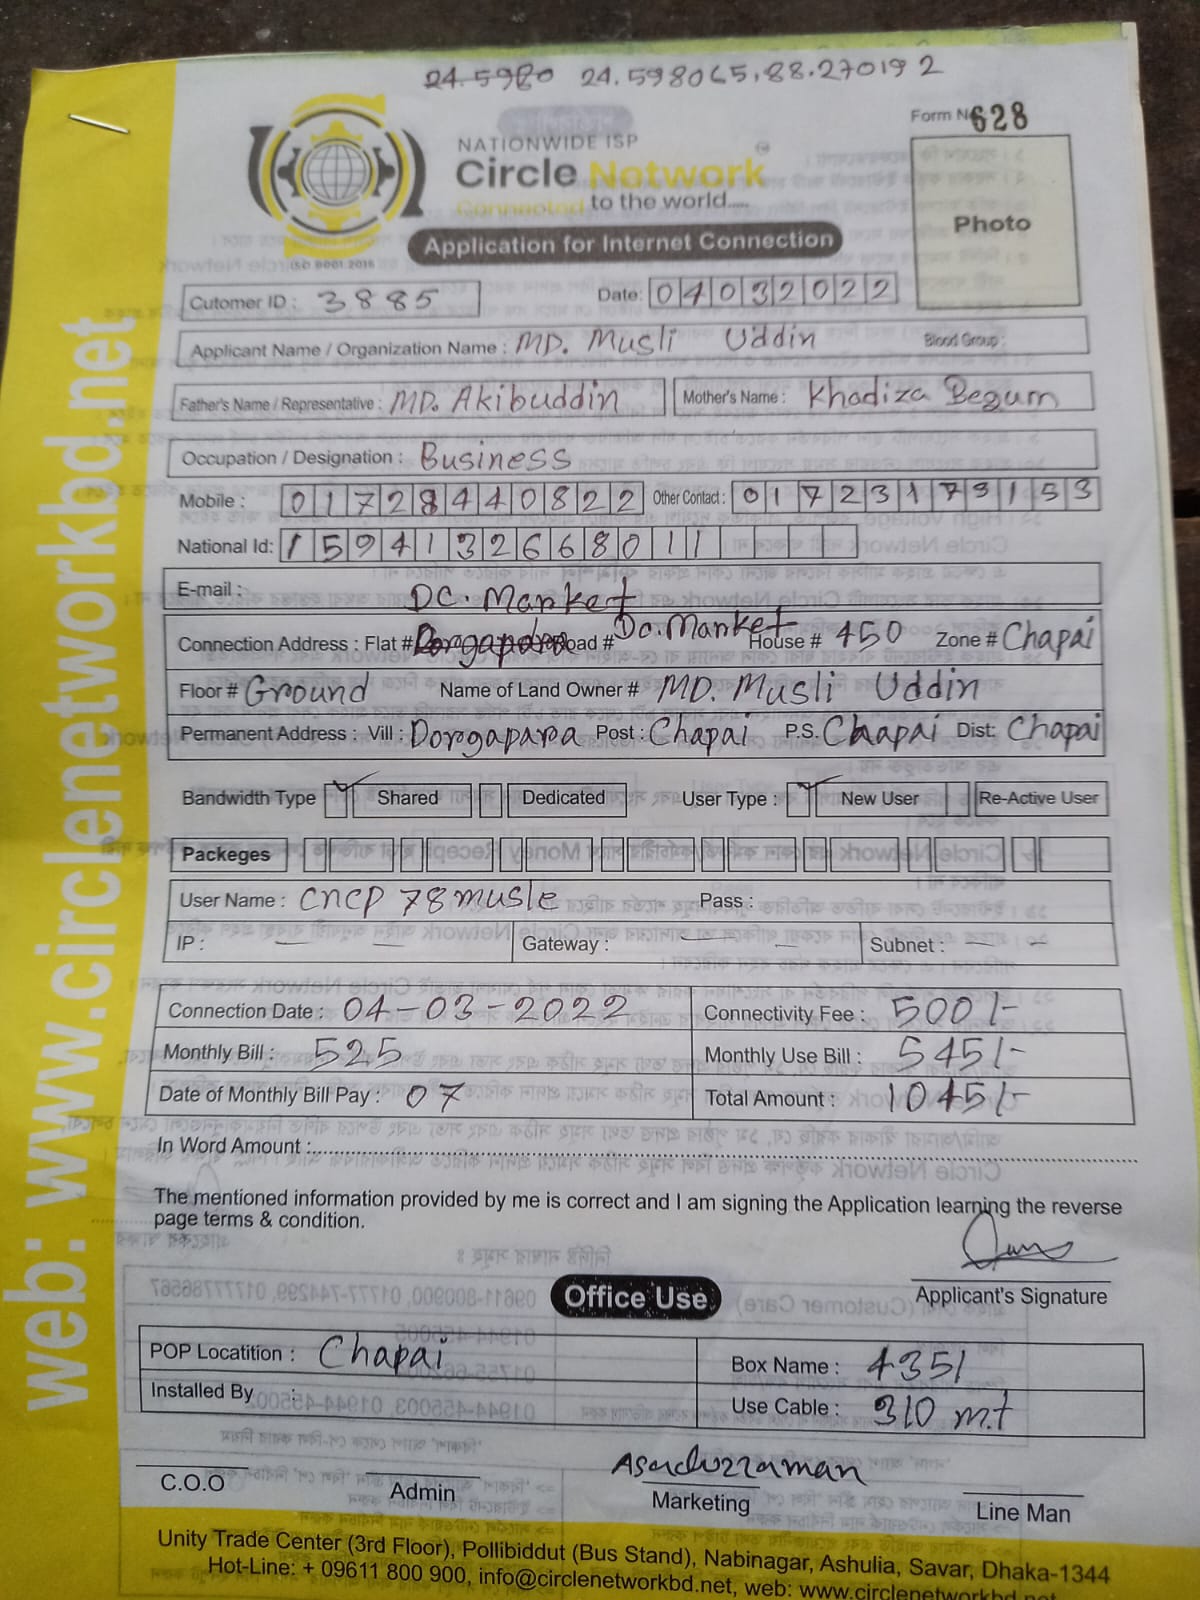 24.5980 24.598065,88.270192
Form No 628
NATIONWIDE ISP
Circle Network
Connected to the world.....
Photo
Application for Internet Connection
ISO 9001:2015
Cutomer ID : 3885 Date: 04032022
Applicant Name / Organization Name : MD. Musli Uddin Blood Group :
Father's Name / Representative : MD. Akibuddin Mother's Name : Khadiza Begum
Occupation / Designation : Business
Mobile : 01728440822 Other Contact : 01723173153
National Id: 1594132668011
E-mail : DC. Market
Connection Address : Flat # Road # Dc. Market House # 450 Zone # Chapai
Floor # Ground Name of Land Owner # MD. Musli Uddin
Permanent Address : Vill : Dorgapara Post : Chapai P.S. Chapai Dist: Chapai
Bandwidth Type Shared Dedicated User Type : New User Re-Active User
Packeges
User Name : cncp 78musle Pass :
IP : — — Gateway : — — Subnet : — -
Connection Date : 04-03-2022 Connectivity Fee : 500/-
Monthly Bill : 525 Monthly Use Bill : 545/-
Date of Monthly Bill Pay : 07 Total Amount : 1045/-
In Word Amount :
The mentioned information provided by me is correct and I am signing the Application learning the reverse
page terms & condition.
Applicant's Signature
Office Use
POP Locatition : Chapai Box Name : 4351
Installed By : Use Cable : 310 m.t
Asaduzzaman
C.O.O Admin Marketing Line Man
Unity Trade Center (3rd Floor), Pollibiddut (Bus Stand), Nabinagar, Ashulia, Savar, Dhaka-1344
Hot-Line: + 09611 800 900, info@circlenetworkbd.net, web: www.circlenetworkbd.net
web: www.circlenetworkbd.net